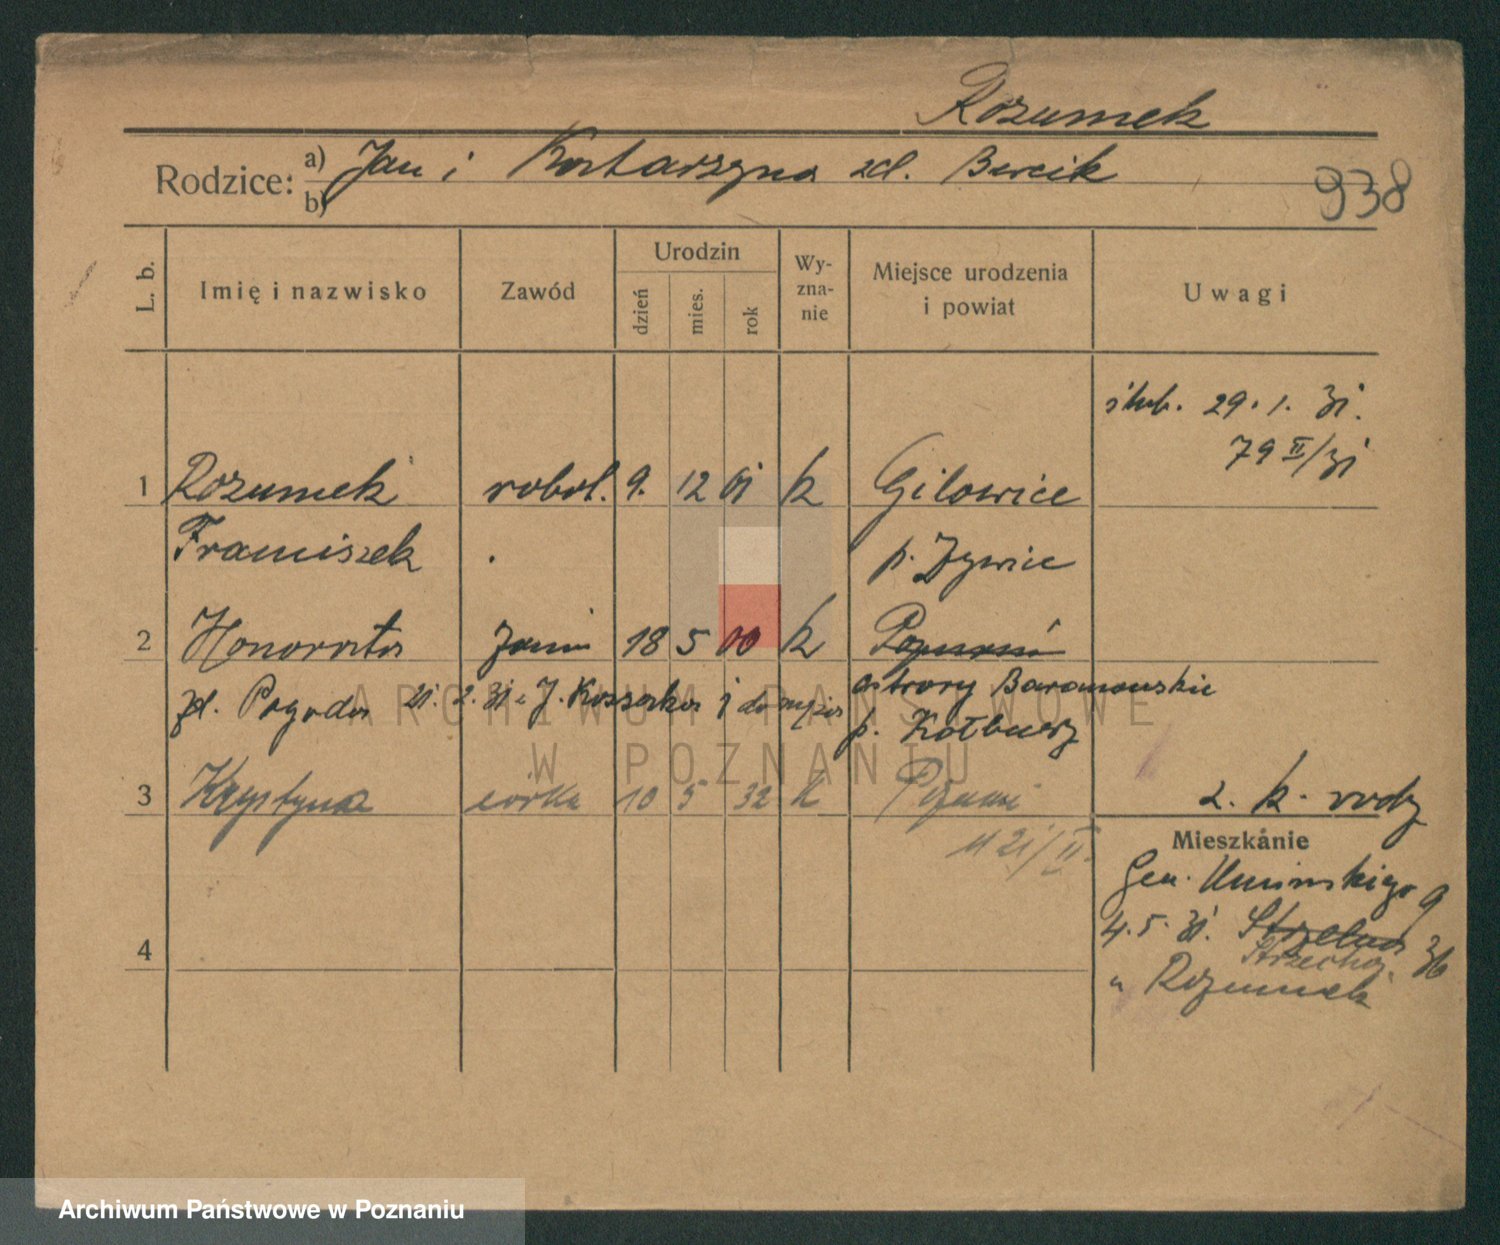 Rozumek
Rodzice: a) Jan i Katarzyna zd. Bercik
b)
938
L. b.
Imię i nazwisko
Zawód
Urodzin
dzień
mies.
rok
Wy-
zna-
nie
Miejsce urodzenia
i powiat
Uwagi
ślub. 29.1.31.
79 II/31
1 Rozumek robot. 9. 12 01 k Gilowice
Franciszek p. Żywiec
2 Honorata żona 18 5 00 k Poznań
zd. Pogoda 21.2.31 z J. Kossaka 1 do męża ostrory Baranowskie
p. Kołbusz
3 Krystyna córka 10 5 32 k Poznań
2. k. rodz
1121/II
Mieszkanie
Gen. Umińskiego 9
4.5.31. Strzelna 36
Strzecha
u Rozumek
4
ARCHIWUM PAŃSTWOWE
W POZNANIU
Archiwum Państwowe w Poznaniu